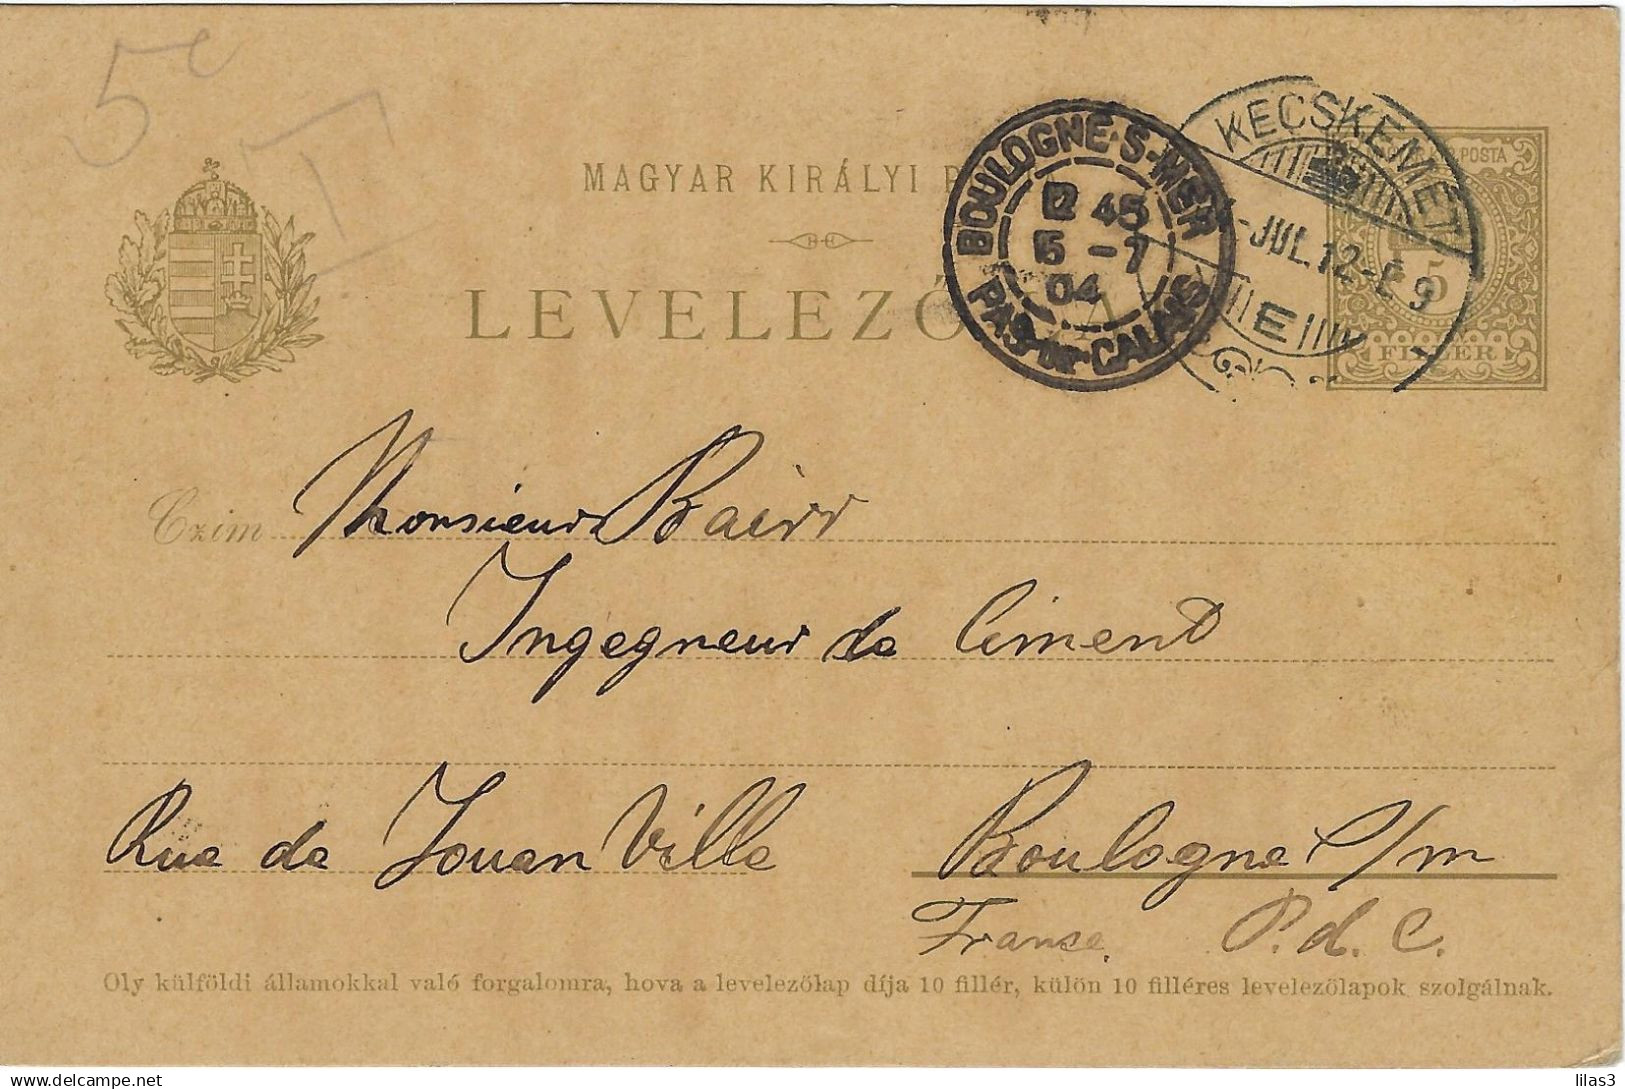 5c
T
MAGYAR KIRÁLYI P
LEVELEZŐ A
BOULOGNE-S-MER
12 45
5 -7
04
PAS-DE-CALAIS
KECSKEMÉT
JUL. 12
E
POSTA
5
FILLÉR
Czim Monsieur Bairr
Ingegneur de Ciment
Rue de Jouan Ville Boulogne s/m
France. P. d. C.
Oly külföldi államokkal való forgalomra, hova a levelezőlap díja 10 fillér, külön 10 filléres levelezőlapok szolgálnak.
www.delcampe.net
lilas3